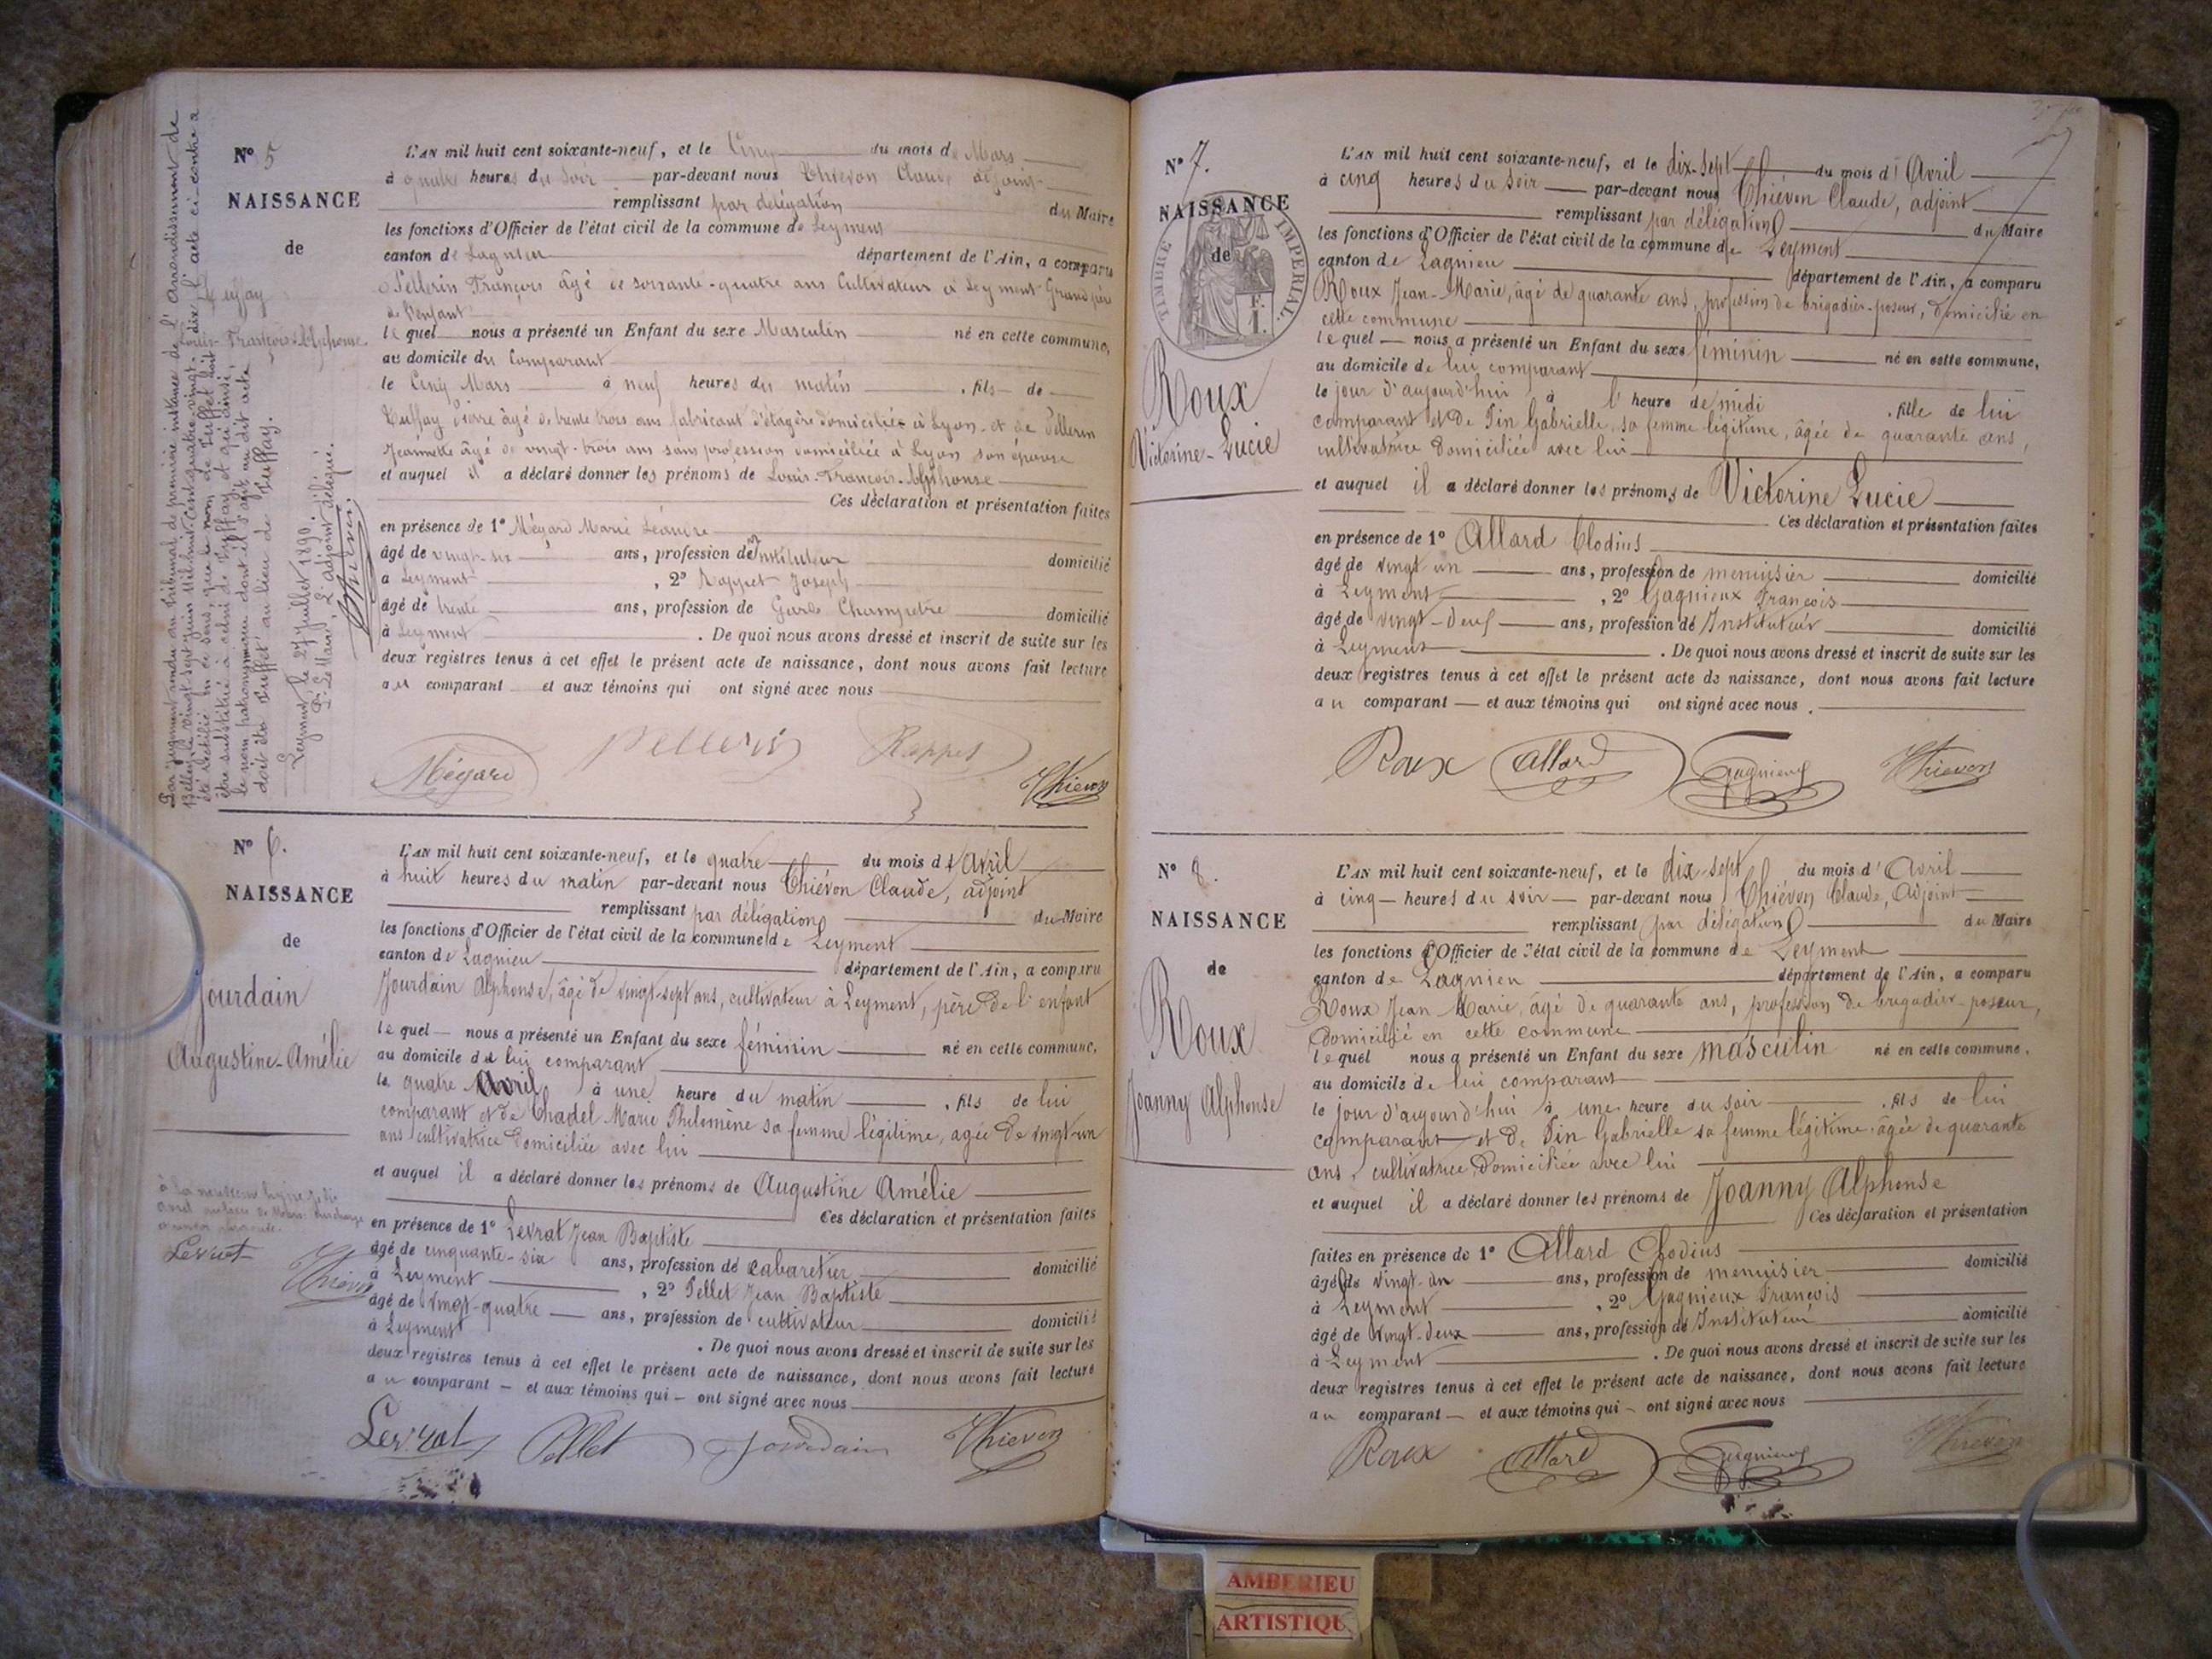 Nº 5
NAISSANCE
de
Louis-François-Alphonse
Par jugement rendu au tribunal de première instance de l'Arrondissement de
Belley le vingt-sept juin mil-huit-cent-quatre-vingt-dix, l'acte ci-contre a
été rectifié en ce sens, que le nom de Puffet
être substitué à celui de et qu'ainsi,
le nom patronymique dont il s'agit au dit acte
doit être au lieu de
Leyment, le 27 Juillet 1890.
Pr Le Maire, L'adjoint délégué.
L'AN mil huit cent soixante-neuf, et le Cinq du mois de Mars
à quatre heures du Soir par-devant nous Thiévon Claude adjoint
remplissant par délégation du Maire
les fonctions d'Officier de l'état civil de la commune de Leyment
canton de Lagnieu département de l'Ain, a comparu
Pellerin François âgé de soixante-quatre ans Cultivateur à Leyment Grand père
de l'enfant
lequel nous a présenté un Enfant du sexe Masculin né en cette commune,
au domicile du Comparant
le Cinq Mars à neuf heures du matin , fils de
Pierre âgé de trente trois ans fabricant d'étagère domicilié à Lyon et de Pellerin
Jeannette âgé de vingt-trois ans sans profession domiciliée à Lyon son épouse
et auquel il a déclaré donner les prénoms de Louis-François-Alphonse
Ces déclaration et présentation faites
en présence de 1º Mégard Marie Léandre
âgé de vingt-six ans, profession de Instituteur domicilié
à Leyment , 2º Rappet Joseph
âgé de trente ans, profession de Garde Champêtre domicilié
à Leyment . De quoi nous avons dressé et inscrit de suite sur les
deux registres tenus à cet effet le présent acte de naissance, dont nous avons fait lecture
au comparant et aux témoins qui ont signé avec nous
Mégard Pellerin Rappet Thievon
Nº 6.
NAISSANCE
de
Jourdain
Augustine-Amélie
L'AN mil huit cent soixante-neuf, et le quatre du mois d'Avril
à huit heures du matin par-devant nous Thiévon Claude, adjoint
remplissant par délégation du Maire
les fonctions d'Officier de l'état civil de la commune de Leyment
canton de Lagnieu département de l'Ain, a comparu
Jourdain Alphonse, âgé de vingt-sept ans, cultivateur à Leyment, père de l'enfant
lequel nous a présenté un Enfant du sexe féminin né en cette commune,
au domicile de lui comparant
le quatre Avril à une heure du matin , fils de lui
comparant et de Chadel Marie Philomène sa femme légitime, agée de vingt-un
ans cultivatrice domiciliée avec lui
et auquel il a déclaré donner les prénoms de Augustine Amélie
Ces déclaration et présentation faites
en présence de 1º Levrat Jean Baptiste
âgé de cinquante-six ans, profession de cabaretier domicilié
à Leyment , 2º Pellet Jean Baptiste
âgé de vingt-quatre ans, profession de cultivateur domicilié
à Leyment . De quoi nous avons dressé et inscrit de suite sur les
deux registres tenus à cet effet le présent acte de naissance, dont nous avons fait lecture
au comparant et aux témoins qui ont signé avec nous
Levrat Thievon
Levrat Pellet Jourdain Thievon
Nº 7.
NAISSANCE
de
TIMBRE IMPERIAL
Roux
Victorine-Lucie
L'AN mil huit cent soixante-neuf, et le dix-sept du mois d'Avril
à cinq heures du soir par-devant nous Thiévon Claude, adjoint
remplissant par délégation du Maire
les fonctions d'Officier de l'état civil de la commune de Leyment
canton de Lagnieu département de l'Ain, a comparu
Roux Jean-Marie, âgé de quarante ans, profession de brigadier-poseur, domicilié en
cette commune
lequel nous a présenté un Enfant du sexe féminin né en cette commune,
au domicile de lui comparant
le jour d'aujourd'hui à l'heure de midi , fille de lui
comparant et de Pin Gabrielle, sa femme légitime, âgée de quarante ans,
cultivatrice domiciliée avec lui
et auquel il a déclaré donner les prénoms de Victorine Lucie
Ces déclaration et présentation faites
en présence de 1º Allard Clodius
âgé de vingt un ans, profession de menuisier domicilié
à Leyment , 2º Gagnieux François
âgé de vingt-deux ans, profession de Instituteur domicilié
à Leyment . De quoi nous avons dressé et inscrit de suite sur les
deux registres tenus à cet effet le présent acte de naissance, dont nous avons fait lecture
au comparant et aux témoins qui ont signé avec nous.
Roux Allard Gagnieux Thievon
Nº 8.
NAISSANCE
de
Roux
Joanny Alphonse
L'AN mil huit cent soixante-neuf, et le dix-sept du mois d'Avril
à cinq heures du soir par-devant nous Thiévon Claude, Adjoint
remplissant par délégation du Maire
les fonctions d'Officier de l'état civil de la commune de Leyment
canton de Lagnieu département de l'Ain, a comparu
Roux Jean Marie, âgé de quarante ans, profession de brigadier-poseur,
domicilié en cette commune
lequel nous a présenté un Enfant du sexe masculin né en cette commune,
au domicile de lui comparant
le jour d'aujourd'hui à une heure du soir , fils de lui
comparant et de Pin Gabrielle sa femme légitime âgée de quarante
ans, cultivatrice, domiciliée avec lui
et auquel il a déclaré donner les prénoms de Joanny Alphonse
Ces déclaration et présentation
faites en présence de 1º Allard Clodius
âgé de vingt-un ans, profession de menuisier domicilié
à Leyment , 2º Gagnieux François
âgé de vingt-deux ans, profession de Instituteur domicilié
à Leyment . De quoi nous avons dressé et inscrit de suite sur les
deux registres tenus à cet effet le présent acte de naissance, dont nous avons fait lecture
au comparant et aux témoins qui ont signé avec nous
Roux Allard Gagnieux Thievon
AMBERIEU
ARTISTIQUE